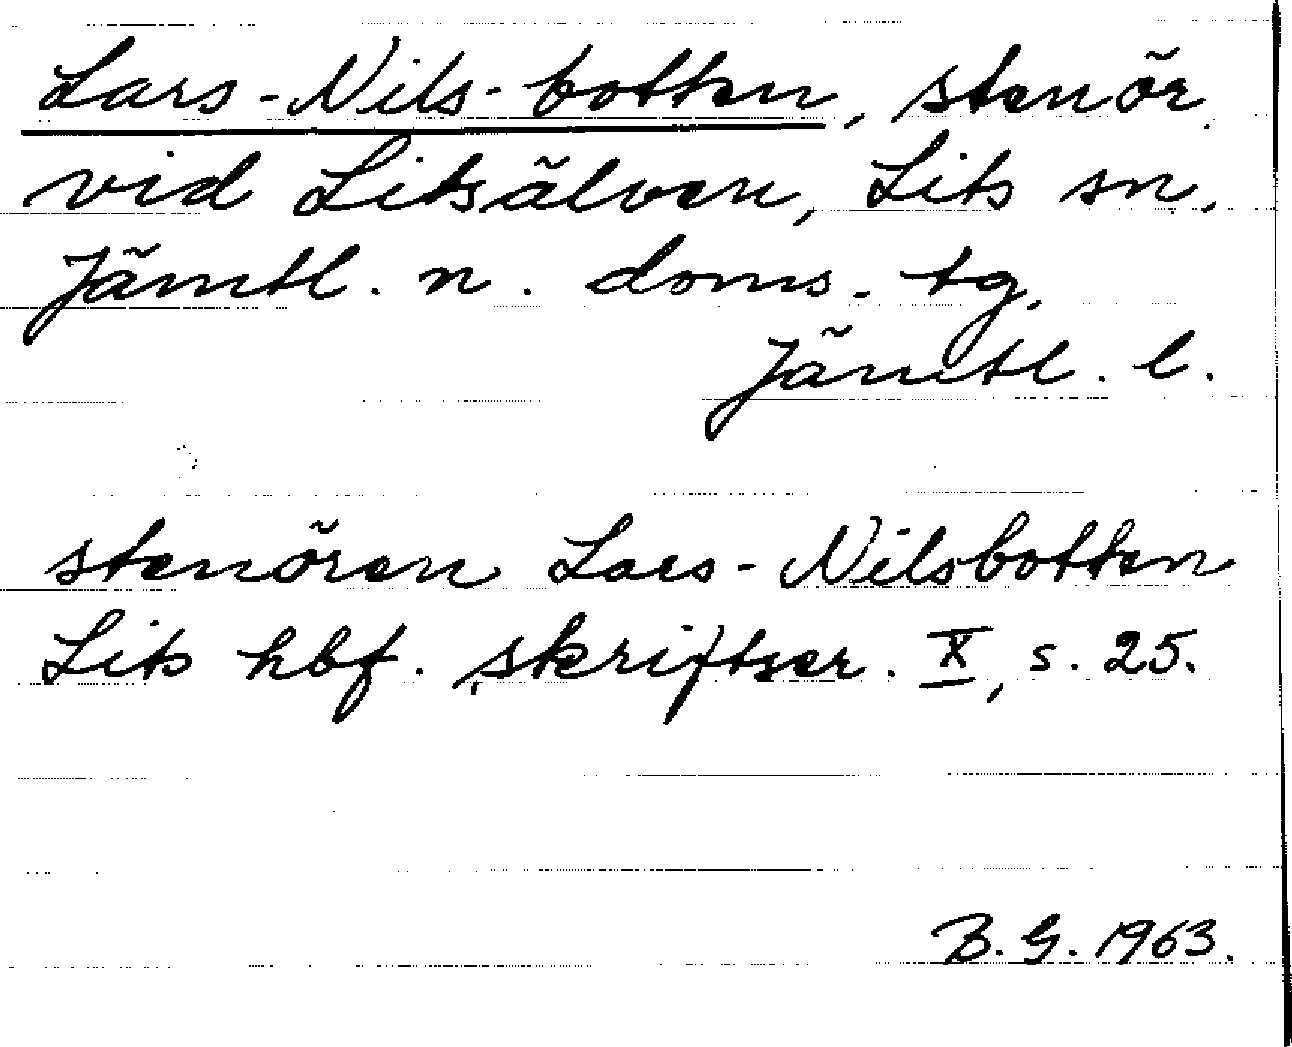 Lars-Nils-botten, stenör
vid Litsälven, Lits sn,
Jämtl. n. doms. tg,
Jämtl. l.
stenören Lars-Nilsbotten
Lits hbf. skriftser. X, s. 25.
B. G. 1963.